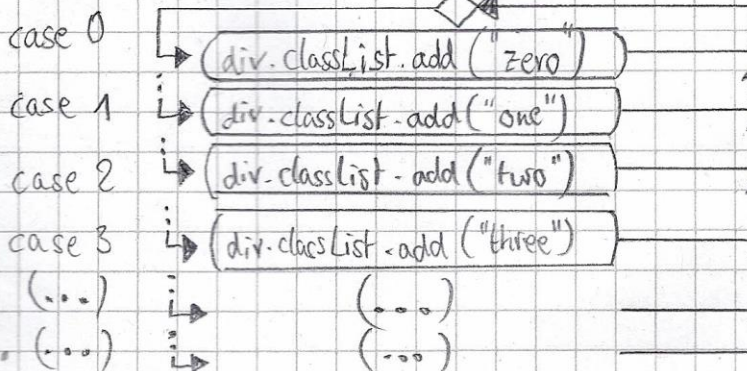 case 0 div.classList.add("zero")
case 1 div.classList.add("one")
case 2 div.classList.add("two")
case 3 div.classList.add("three")
(...) (...)
(...) (...)